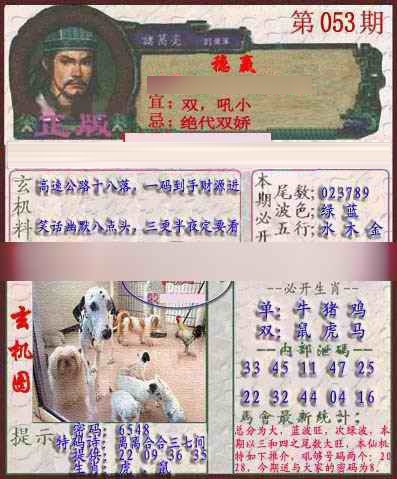 第053期
諸葛亮
德赢
宜：双，吼小
忌：绝代双娇
正版
玄机料
高速公路十八落，一码到手财源进
笑话幽默八点头，三更半夜定要看
本期必开
尾数：023789
波色：绿 蓝
五行：水 木 金
玄机图
--必开生肖--
单：牛 猪 鸡
双：鼠 虎 马
--内部泄码--
33 45 11 47 25
22 32 44 04 16
馬會最新統計：
总分为大，蓝波旺，次绿波，本期以三和四之尾数大旺，本仙机特如下推介，吼够号码两个：2028，今期送与大家的密码为8．
提示
密码：6548
特码诗：离离合合三七间
提供：22 09 36 35
生肖：虎、鼠